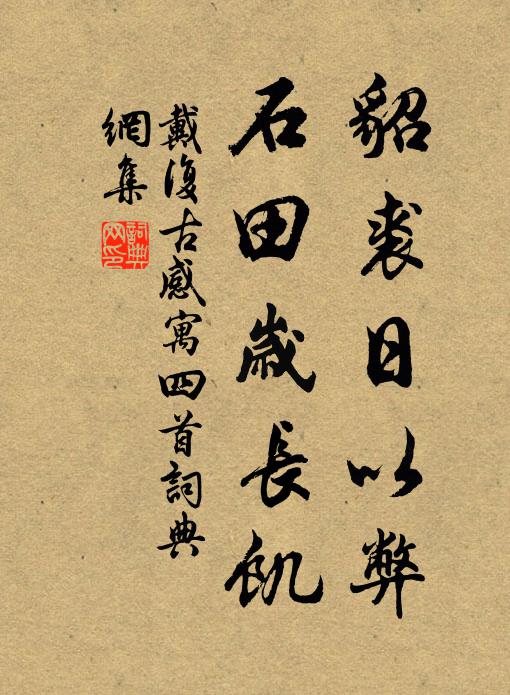 貂裘日以弊
石田歲長飢
戴復古感寓四首詞典
網集
詞典
网印